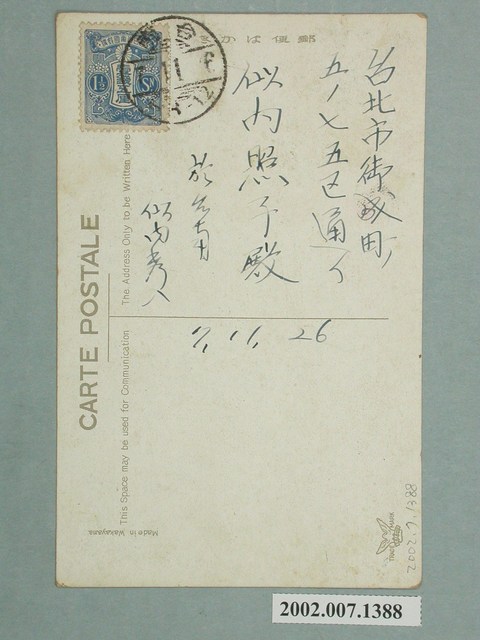 郵便はかき
1½ SN
台北市御成町
五ノ七五区通入
似内照子殿
於台南
似内
7, 11, 26
CARTE POSTALE
The Address Only to be Written Here
This Space may be used for Communication
Made in Wakayama.
TRADE MARK
2002.7.1388
2002.007.1388